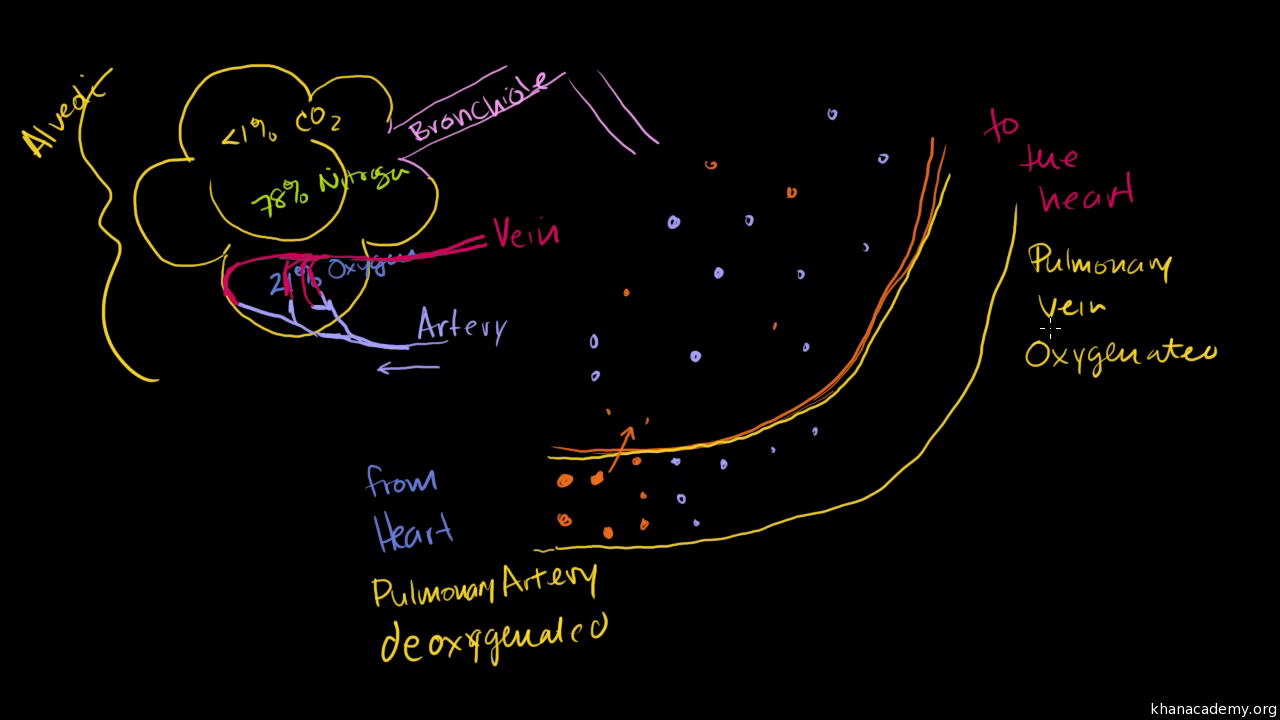 Alveoli
<1% CO2
78% Nitrogen
21% Oxygen
Bronchiole
Vein
Artery
from
Heart
Pulmonary Artery
deoxygenated
to
the
heart
Pulmonary
vein
Oxygenated
khanacademy.org